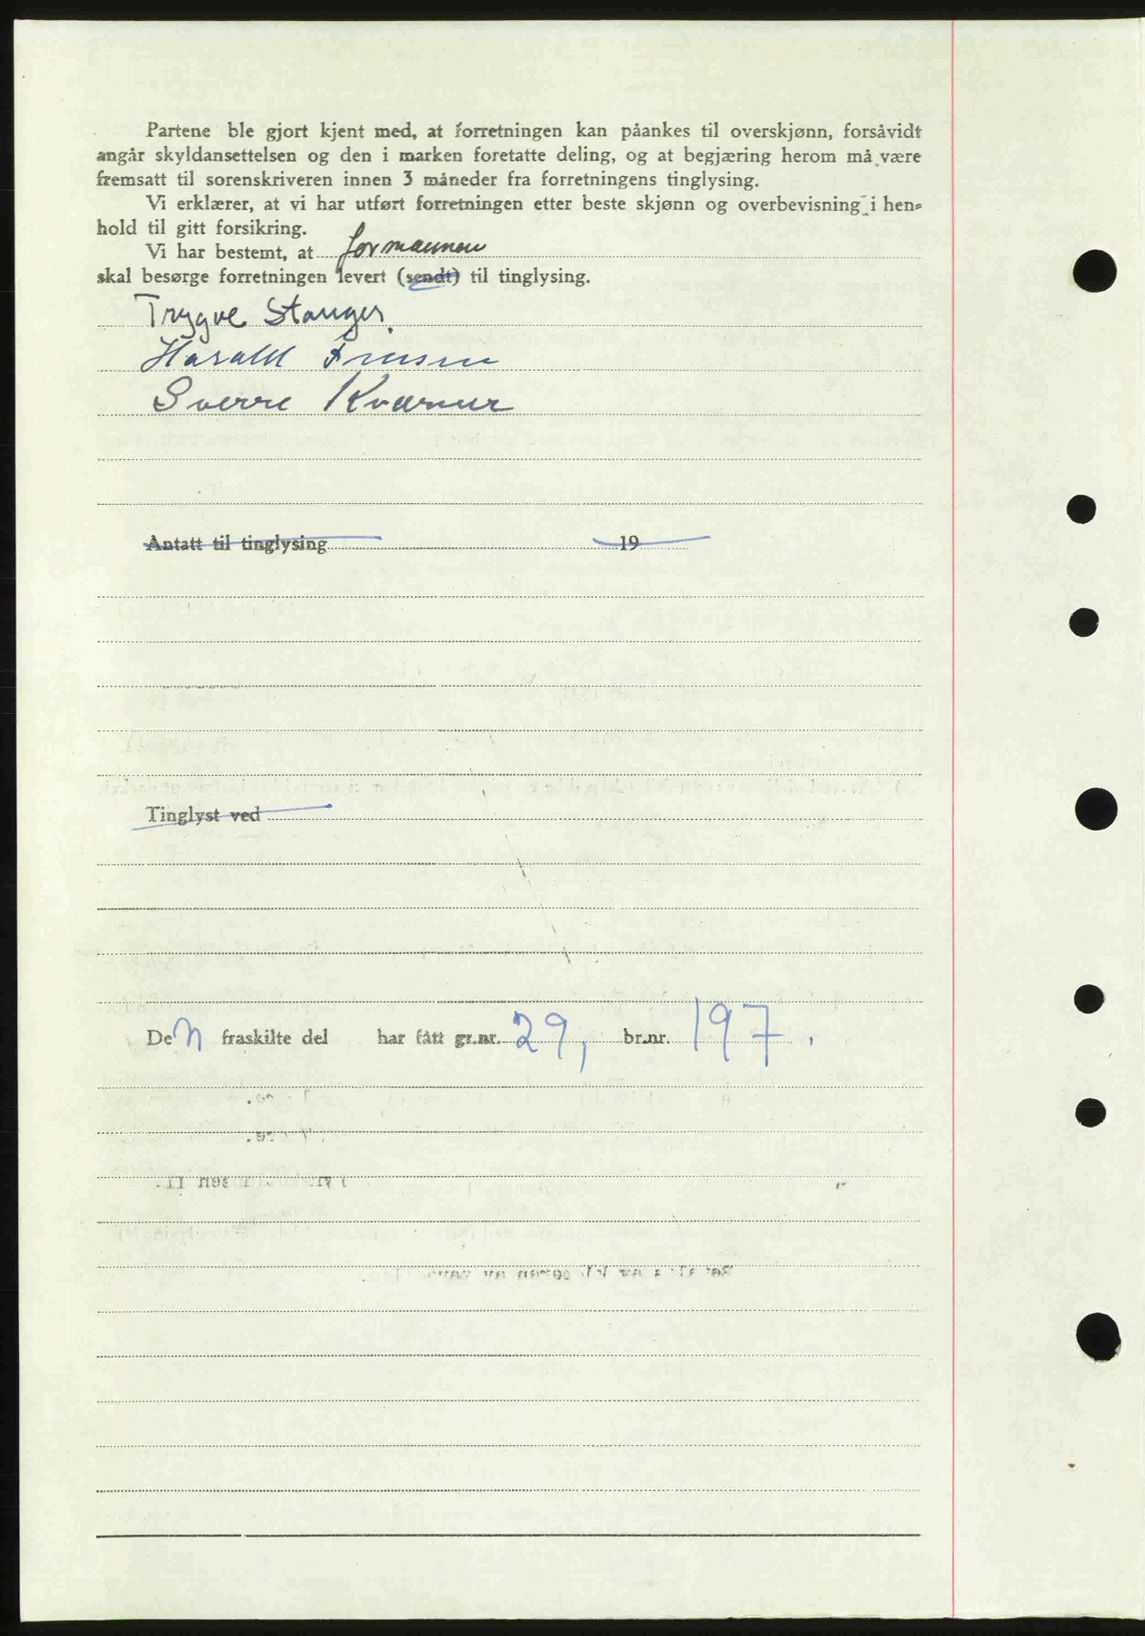 Partene ble gjort kjent med, at forretningen kan påankes til overskjønn, forsåvidt
angår skyldansettelsen og den i marken foretatte deling, og at begjæring herom må være
fremsatt til sorenskriveren innen 3 måneder fra forretningens tinglysing.
Vi erklærer, at vi har utført forretningen etter beste skjønn og overbevisning i hen-
hold til gitt forsikring.
Vi har bestemt, at formannen
skal besørge forretningen levert (sendt) til tinglysing.
Trygve Stanger.
Harald
Sverre Kværner
Antatt til tinglysing 19
Tinglyst ved
Den fraskilte del har fått gr.nr. 29, br.nr. 197.